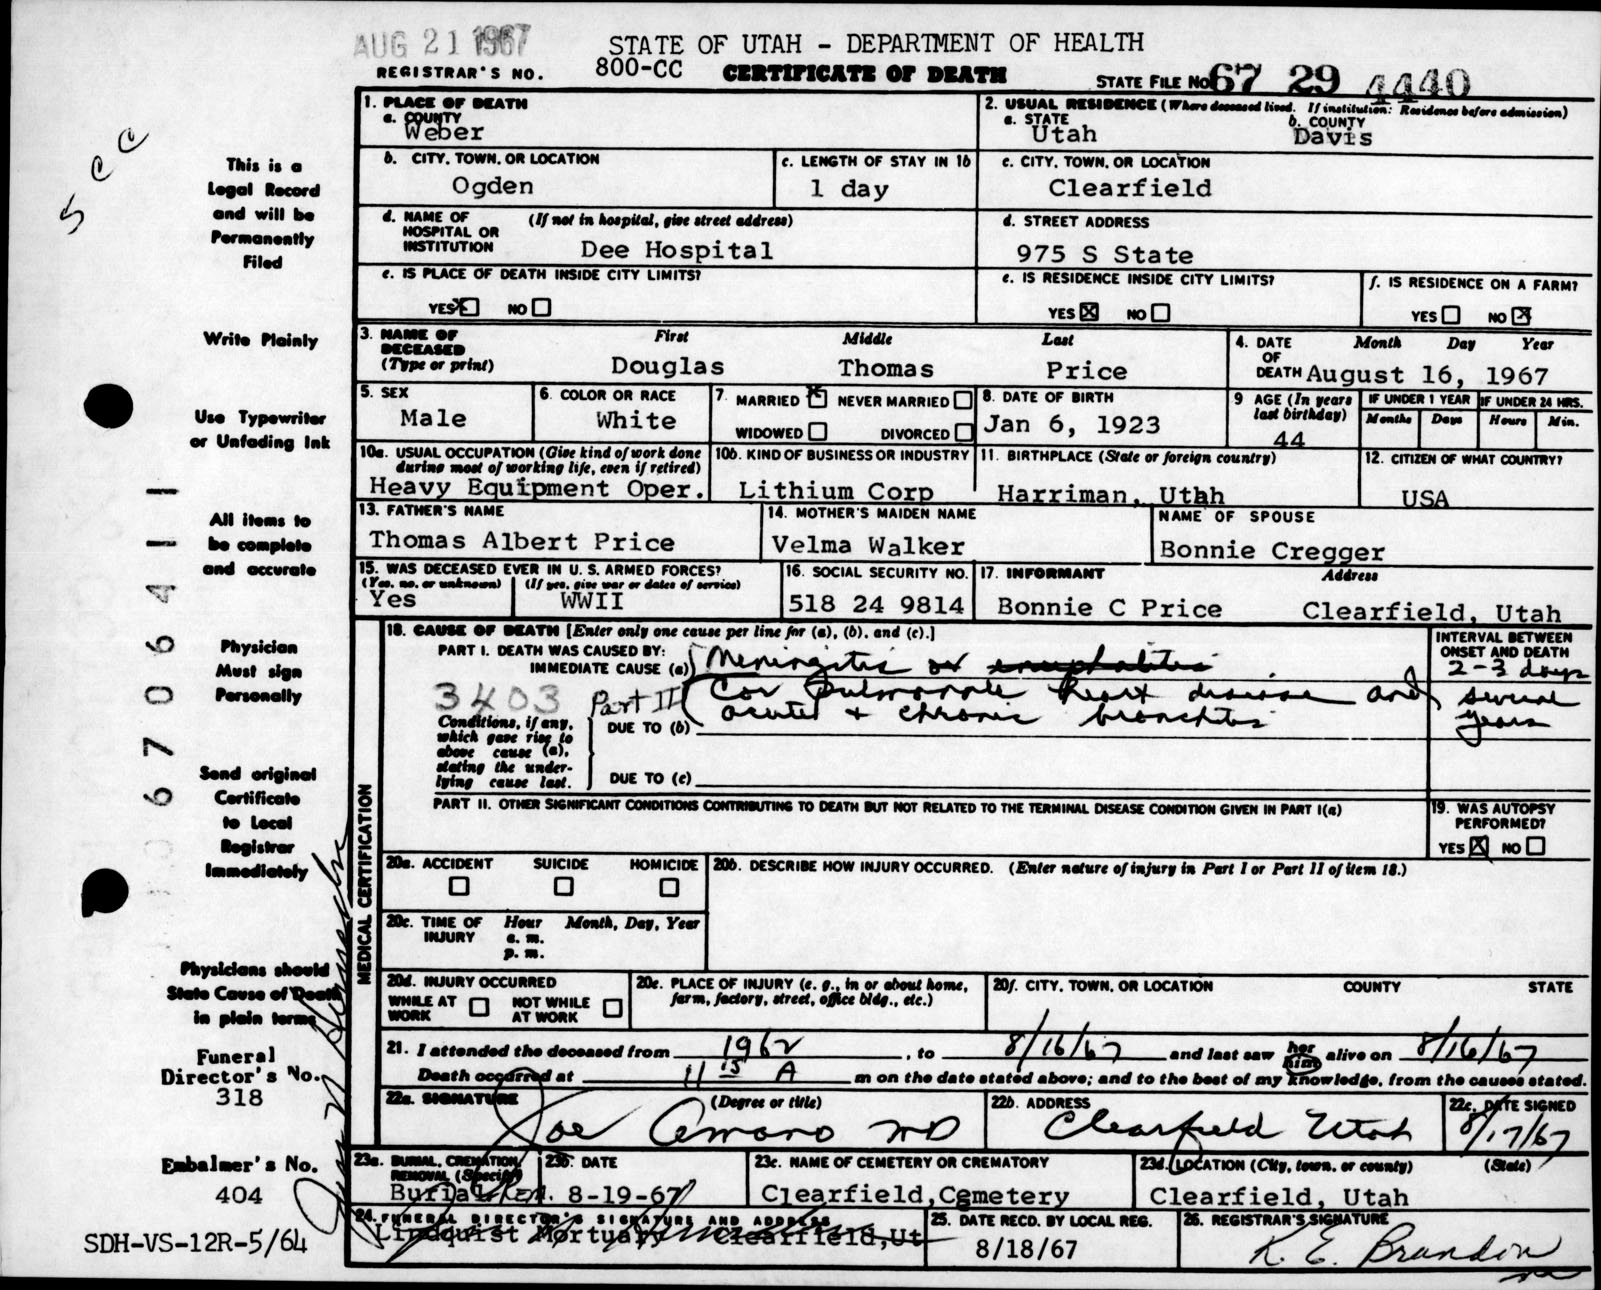 AUG 21 1967
STATE OF UTAH - DEPARTMENT OF HEALTH
REGISTRAR'S NO. 800-CC CERTIFICATE OF DEATH STATE FILE NO. 67 29 4440
5 CC
This is a
Legal Record
and will be
Permanently
Filed
Write Plainly
Use Typewriter
or Unfading Ink
All items to
be complete
and accurate
Physician
Must sign
Personally
Send original
Certificate
to Local
Registrar
Immediately
Physicians should
State Cause of Death
in plain terms
Funeral
Director's No.
318
Embalmer's No.
404
SDH-VS-12R-5/64
67 0641 1
1. PLACE OF DEATH
a. COUNTY
Weber
2. USUAL RESIDENCE (Where deceased lived. If institution: Residence before admission)
a. STATE b. COUNTY
Utah Davis
b. CITY, TOWN, OR LOCATION
Ogden
c. LENGTH OF STAY IN 1b
1 day
c. CITY, TOWN, OR LOCATION
Clearfield
d. NAME OF HOSPITAL OR INSTITUTION (If not in hospital, give street address)
Dee Hospital
d. STREET ADDRESS
975 S State
e. IS PLACE OF DEATH INSIDE CITY LIMITS?
YES X NO
e. IS RESIDENCE INSIDE CITY LIMITS?
YES X NO
f. IS RESIDENCE ON A FARM?
YES NO X
3. NAME OF DECEASED (Type or print) First Middle Last
Douglas Thomas Price
4. DATE OF DEATH Month Day Year
August 16, 1967
5. SEX
Male
6. COLOR OR RACE
White
7. MARRIED X NEVER MARRIED
WIDOWED DIVORCED
8. DATE OF BIRTH
Jan 6, 1923
9 AGE (In years last birthday)
44
IF UNDER 1 YEAR
Months Days
IF UNDER 24 HRS.
Hours Min.
10a. USUAL OCCUPATION (Give kind of work done during most of working life, even if retired)
Heavy Equipment Oper.
10b. KIND OF BUSINESS OR INDUSTRY
Lithium Corp
11. BIRTHPLACE (State or foreign country)
Harriman, Utah
12. CITIZEN OF WHAT COUNTRY?
USA
13. FATHER'S NAME
Thomas Albert Price
14. MOTHER'S MAIDEN NAME
Velma Walker
NAME OF SPOUSE
Bonnie Cregger
15. WAS DECEASED EVER IN U. S. ARMED FORCES?
(Yes, no, or unknown) (If yes, give war or dates of service)
Yes WWII
16. SOCIAL SECURITY NO.
518 24 9814
17. INFORMANT Address
Bonnie C Price Clearfield, Utah
MEDICAL CERTIFICATION
18. CAUSE OF DEATH [Enter only one cause per line for (a), (b), and (c).]
PART I. DEATH WAS CAUSED BY:
IMMEDIATE CAUSE (a) Meningitis or encephalitis
INTERVAL BETWEEN ONSET AND DEATH
2-3 days
3403 Part II Cor Pulmonale heart disease and several
Conditions, if any, which gave rise to above cause (a), stating the underlying cause last.
DUE TO (b) acute + chronic bronchitis years
DUE TO (c)
PART II. OTHER SIGNIFICANT CONDITIONS CONTRIBUTING TO DEATH BUT NOT RELATED TO THE TERMINAL DISEASE CONDITION GIVEN IN PART I(a)
19. WAS AUTOPSY PERFORMED?
YES X NO
20a. ACCIDENT SUICIDE HOMICIDE
20b. DESCRIBE HOW INJURY OCCURRED. (Enter nature of injury in Part I or Part II of item 18.)
20c. TIME OF INJURY Hour Month, Day, Year
a. m.
p. m.
20d. INJURY OCCURRED
WHILE AT WORK NOT WHILE AT WORK
20e. PLACE OF INJURY (e. g., in or about home, farm, factory, street, office bldg., etc.)
20f. CITY, TOWN, OR LOCATION COUNTY STATE
21. I attended the deceased from 1962, to 8/16/67 and last saw her him alive on 8/16/67
Death occurred at 11 15 A m on the date stated above; and to the best of my knowledge, from the causes stated.
22a. SIGNATURE (Degree or title)
Joe Amano MD
22b. ADDRESS
Clearfield Utah
22c. DATE SIGNED
8/17/67
23a. BURIAL, CREMATION, REMOVAL (Specify)
Burial Rem.
23b. DATE
8-19-67
23c. NAME OF CEMETERY OR CREMATORY
Clearfield, Cemetery
23d. LOCATION (City, town, or county) (State)
Clearfield, Utah
24. FUNERAL DIRECTOR'S SIGNATURE AND ADDRESS
Lindquist Mortuary Clearfield, Ut
25. DATE RECD. BY LOCAL REG.
8/18/67
26. REGISTRAR'S SIGNATURE
K. E. Brandon